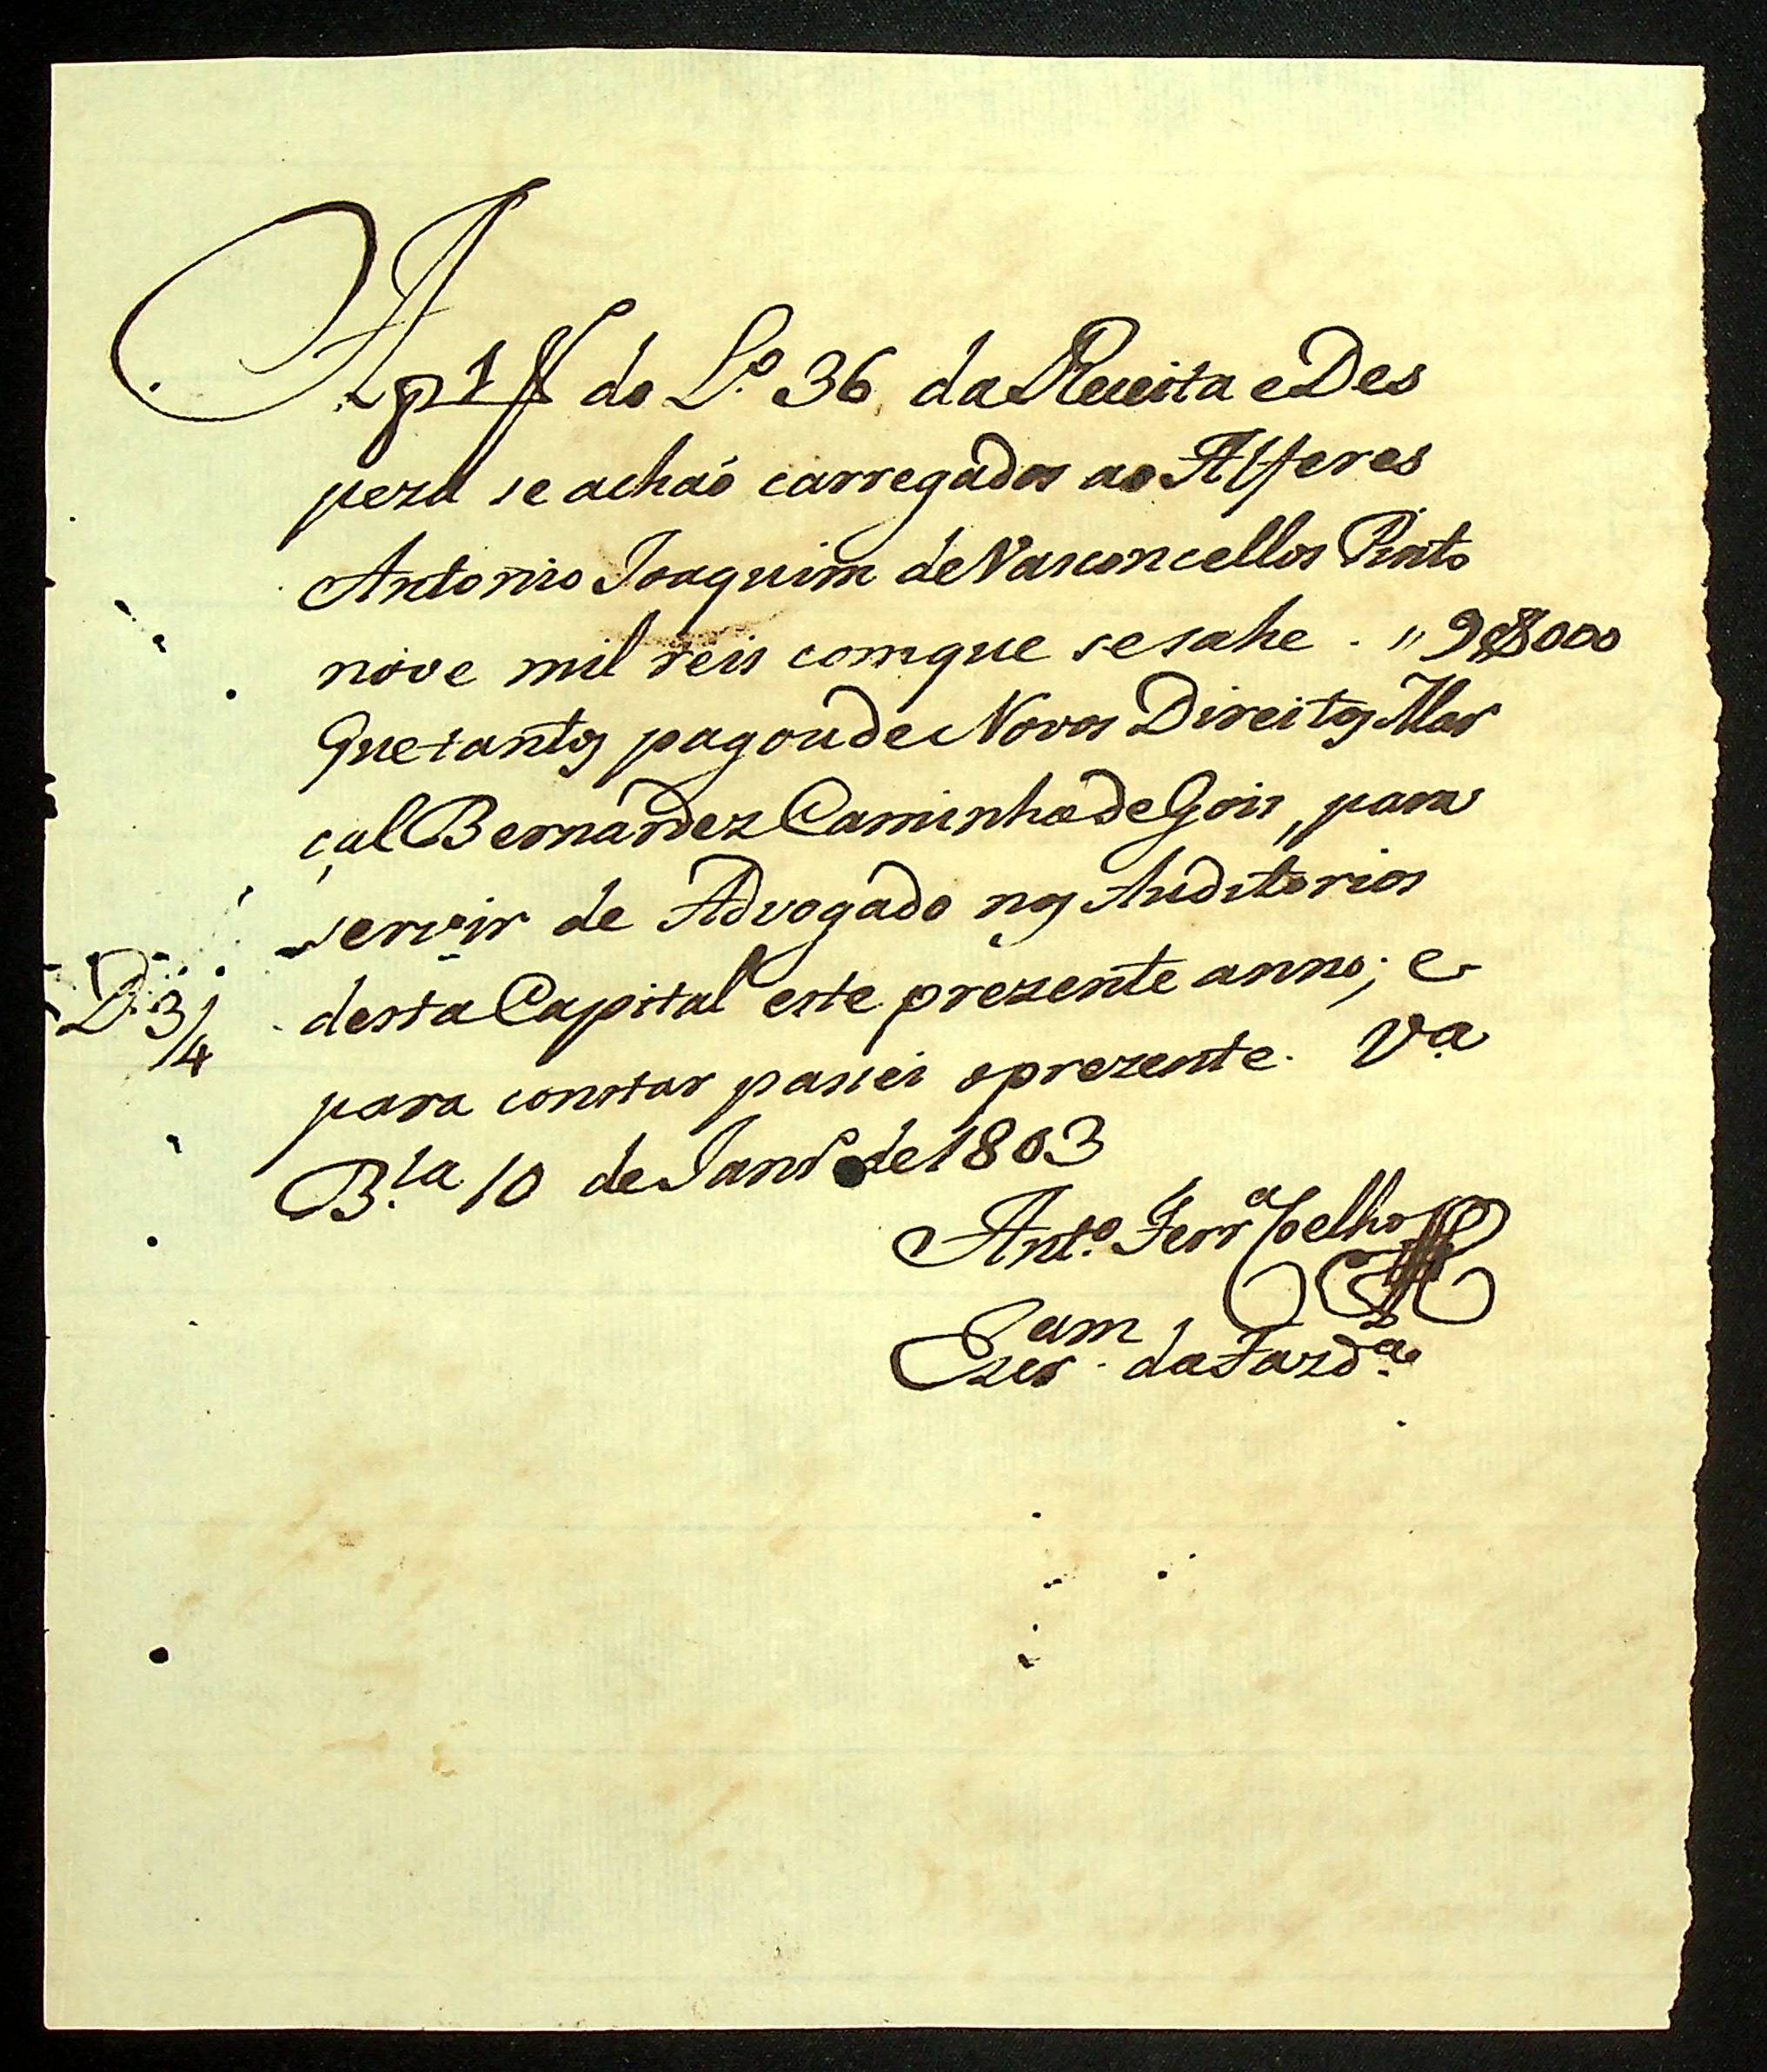 A p. 1 V do L.º 36 da Receita e Des
peza se achaõ carregados ao Alferes
Antonio Joaquim de Vasconcellos Pinto
nove mil reis com que se sahe . " 9$000
Que tantos pagou de Novos Direitos Mar
çal Bernardez Caminha de Gois, para
servir de Advogado nos Auditorios
desta Capital este prezente anno; e
D. 3/4
para constar passei o prezente. V.a
B.la 10 de Janr.º de 1803
Ant.º Ferr.a Coelho
Escr.am da Fazd.a